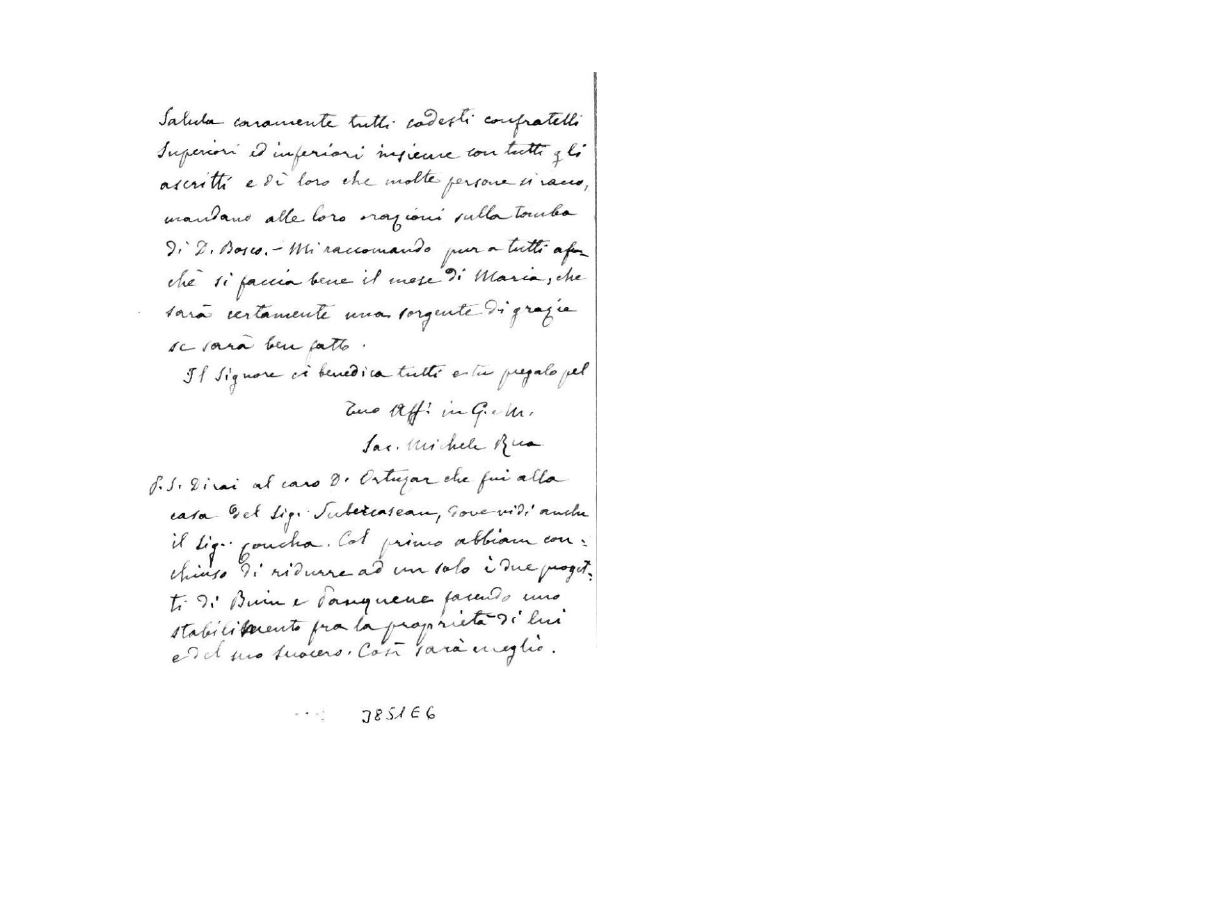 Saluta caramente tutti codesti confratelli
Superiori ed inferiori insieme con tutti gli
ascritti e di' loro che molte persone si racco,
mandano alle loro orazioni sulla tomba
di D. Bosco. - Mi raccomando pur a tutti affin
chè si faccia bene il mese di Maria, che
sarà certamente una sorgente di grazie
se sarà ben fatto.
Il Signore ci benedica tutti e tu pregalo pel
Tuo Aff. in G. e M.
Sac. Michele Rua
P.S. Dirai al caro D. Ortuzar che fui alla
casa del Sig. Subercaseau, dove vidi anche
il Sig. Concha. Col primo abbiam con:
chiuso di ridurre ad un solo i due proget:
ti di Buin e Panquene facendo uno
stabilimento fra la proprietà di lui
e del suo suocero. Così sarà meglio.
3851E6